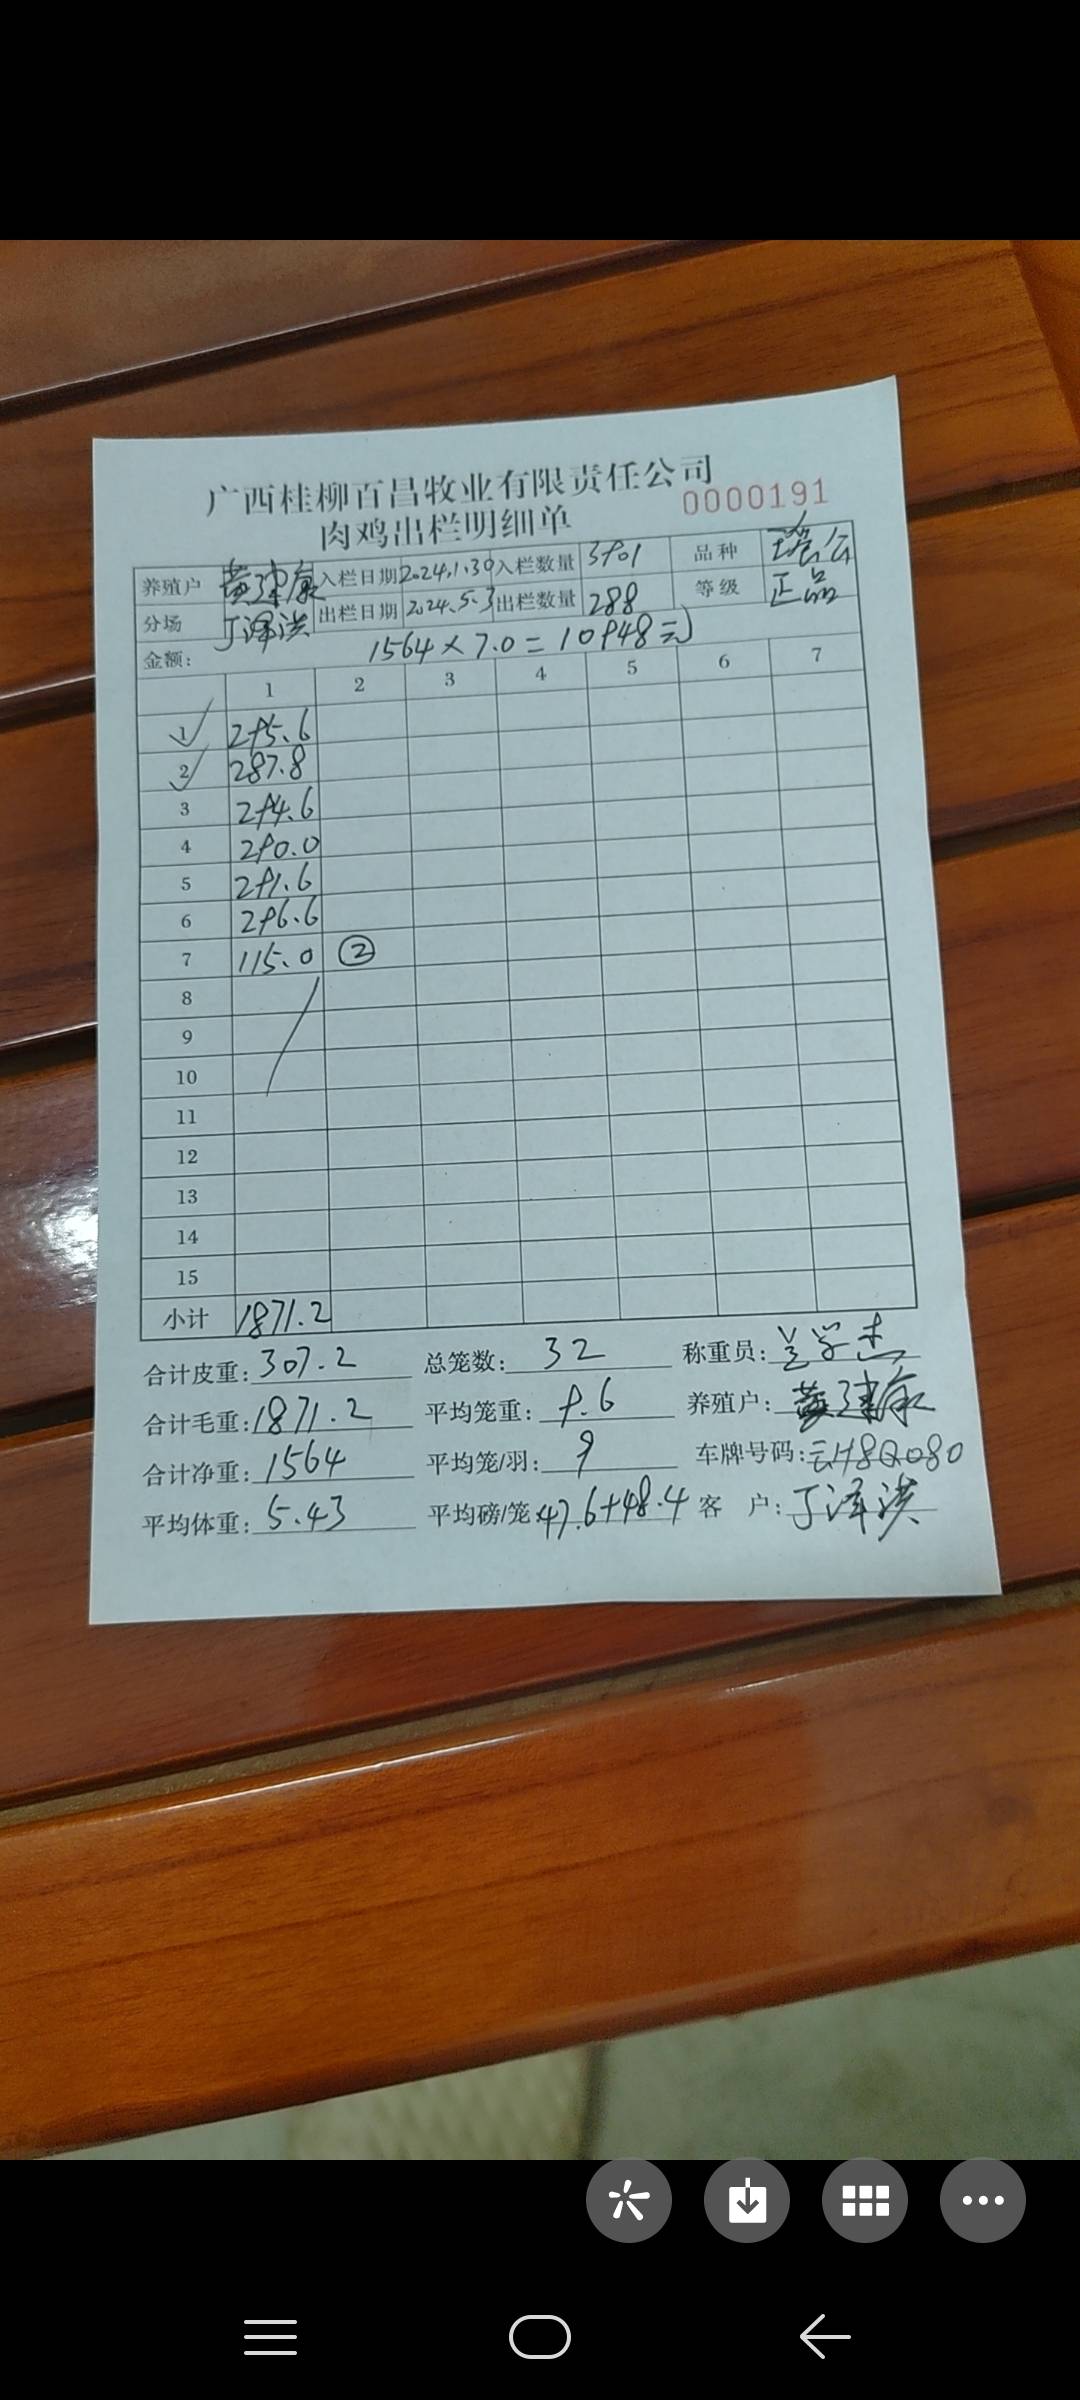 广西桂柳百昌牧业有限责任公司
0000191
肉鸡出栏明细单
养殖户 黄建康 入栏日期 2024.1.30 入栏数量 3901 品种 瑶公
分场 丁泽洪 出栏日期 2024.5.3 出栏数量 288 等级 正品
金额: 1564×7.0=10948元
1 2 3 4 5 6 7
1 295.6
2 287.8
3 294.6
4 290.0
5 291.6
6 296.6
7 115.0 ②
8
9
10
11
12
13
14
15
小计 1871.2
合计皮重: 307.2 总笼数: 32 称重员: 兰学杰
合计毛重: 1871.2 平均笼重: 9.6 养殖户: 黄建康
合计净重: 1564 平均笼/羽: 9 车牌号码: 云H8Q080
平均体重: 5.43 平均磅/笼: 47.6+48.4 客 户: 丁泽洪